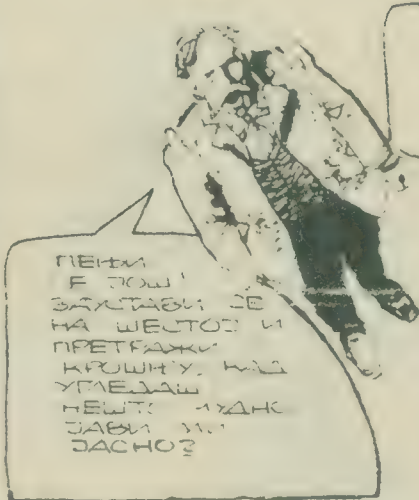 ПЕЊИ
ЈОШ!
ЗАУСТАВИ СЕ
НА ШЕСТОЈ И
ПРЕТРАЖИ
КРОШЊУ. КАД
УГЛЕДАШ
НЕШТО ЧУДНО
ЈАВИ МИ
ЈАСНО?